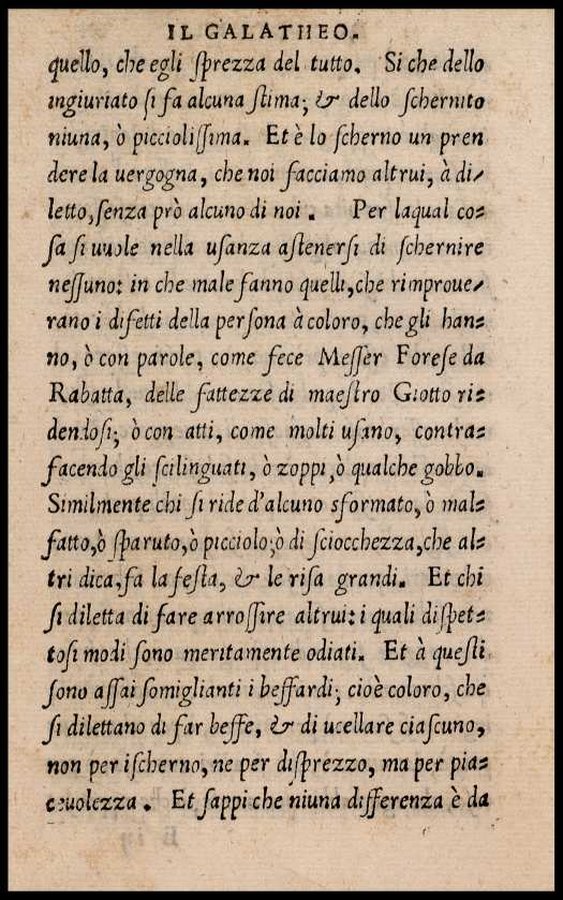 IL GALATHEO.
quello, che egli ſprezza del tutto. Si che dello
ingiuriato ſi fa alcuna ſtima; & dello ſchernito
niuna, ò piccioliſſima. Et è lo ſcherno un pren
dere la uergogna, che noi facciamo altrui, à di⸗
letto, ſenza prò alcuno di noi. Per laqual co⸗
ſa ſi uuole nella uſanza aſtenerſi di ſchernire
neſſuno: in che male fanno quelli, che rimproue⸗
rano i difetti della perſona à coloro, che gli han⸗
no, ò con parole, come fece Meſſer Foreſe da
Rabatta, delle fattezze di maeſtro Giotto ri⸗
dendoſi; ò con atti, come molti uſano, contra⸗
facendo gli ſcilinguati, ò zoppi, ò qualche gobbo.
Similmente chi ſi ride d'alcuno sformato, ò mal⸗
fatto, ò ſparuto, ò picciolo; ò di ſciocchezza, che al⸗
tri dica, fa la feſta, & le riſa grandi. Et chi
ſi diletta di fare arroſſire altrui: i quali diſpet⸗
toſi modi ſono meritamente odiati. Et à queſti
ſono aſſai ſomiglianti i beffardi; cioè coloro, che
ſi dilettano di far beffe, & di ucellare ciaſcuno,
non per iſcherno, ne per diſprezzo, ma per pia⸗
ceuolezza. Et ſappi che niuna differenza è da